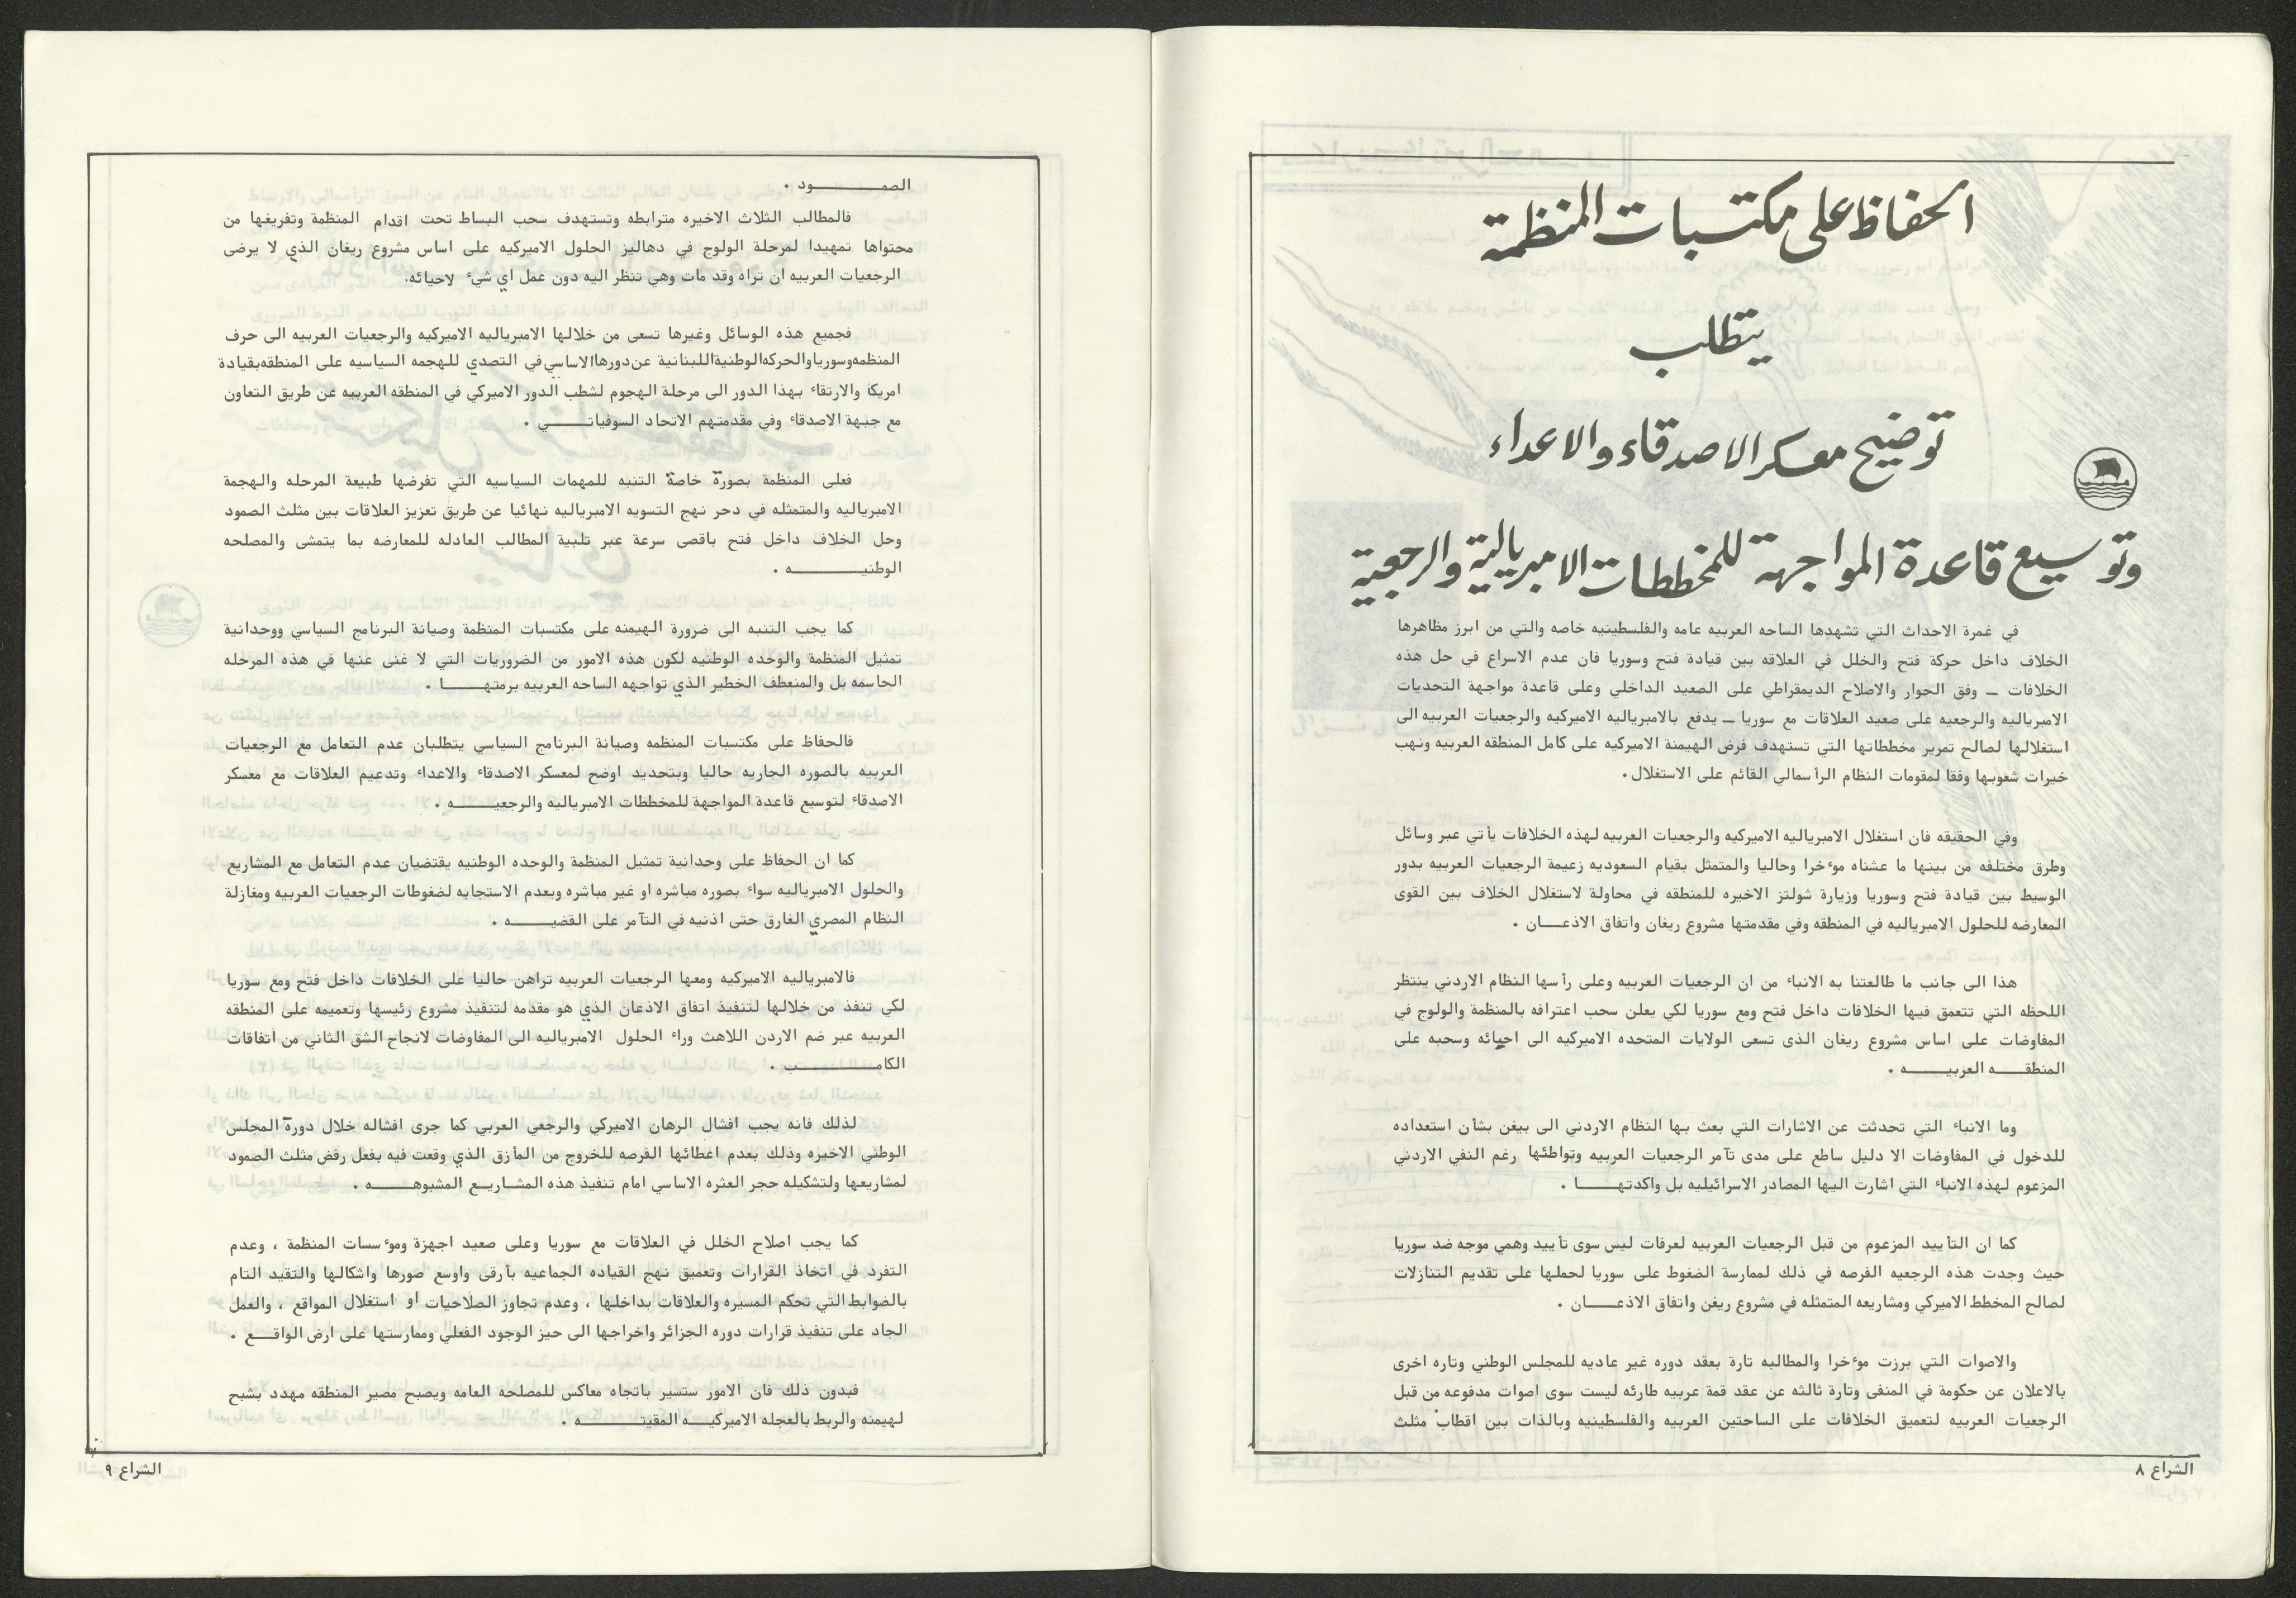 الحفاظ على مكتسبات المنظمة
يتطلب
توضيح معسكر الاصدقاء والاعداء
وتوسيع قاعدة المواجهة للمخططات الامبريالية والرجعية
في غمرة الاحداث التي تشهدها الساحه العربيه عامه والفلسطينيه خاصه والتي من ابرز مظاهرها
الخلاف داخل حركة فتح والخلل في العلاقه بين قيادة فتح وسوريا فان عدم الاسراع في حل هذه
الخلافات ــ وفق الحوار والاصلاح الديمقراطي على الصعيد الداخلي وعلى قاعدة مواجهة التحديات
الامبرياليه والرجعيه على صعيد العلاقات مع سوريا ــ يدفع بالامبرياليه الاميركيه والرجعيات العربيه الى
استغلالها لصالح تمرير مخططاتها التي تستهدف فرض الهيمنة الاميركيه على كامل المنطقه العربيه ونهب
خيرات شعوبها وفقا لمقومات النظام الرأسمالي القائم على الاستغلال.
وفي الحقيقه فان استغلال الامبرياليه الاميركيه والرجعيات العربيه لهذه الخلافات يأتي عبر وسائل
وطرق مختلفه من بينها ما عشناه موءخرا وحاليا والمتمثل بقيام السعوديه زعيمة الرجعيات العربيه بدور
الوسيط بين قيادة فتح وسوريا وزيارة شولتز الاخيره للمنطقه في محاولة لاستغلال الخلاف بين القوى
المعارضه للحلول الامبرياليه في المنطقه وفي مقدمتها مشروع ريغان واتفاق الاذعـــان .
هذا الى جانب ما طالعتنا به الانباء من ان الرجعيات العربيه وعلى رأسها النظام الاردني ينتظر
اللحظه التي تتعمق فيها الخلافات داخل فتح ومع سوريا لكي يعلن سحب اعترافه بالمنظمة والولوج في
المفاوضات على اساس مشروع ريغان الذى تسعى الولايات المتحده الاميركيه الى احيائه وسحبه على
المنطقــــه العربيـــــه .
وما الانباء التي تحدثت عن الاشارات التي بعث بها النظام الاردني الى بيغن بشأن استعداده
للدخول في المفاوضات الا دليل ساطع على مدى تآمر الرجعيات العربيه وتواطئها رغم النفي الاردني
المزعوم لهذه الانباء التي اشارت اليها المصادر الاسرائيليه بل واكدتهـــــا .
كما ان التأييد المزعوم من قبل الرجعيات العربيه لعرفات ليس سوى تأييد وهمي موجه ضد سوريا
حيث وجدت هذه الرجعيه الفرصه في ذلك لممارسة الضغوط على سوريا لحملها على تقديم التنازلات
لصالح المخطط الاميركي ومشاريعه المتمثله في مشروع ريغن واتفاق الاذعـــــان .
والاصوات التي برزت موءخرا والمطالبه تارة بعقد دوره غير عاديه للمجلس الوطني وتاره اخرى
بالاعلان عن حكومة في المنفى وتارة ثالثه عن عقد قمة عربيه طارئه ليست سوى اصوات مدفوعه من قبل
الرجعيات العربيه لتعميق الخلافات على الساحتين العربيه والفلسطينيه وبالذات بين اقطاب مثلث
الشراع ٨
الصمـــــــــود .
فالمطالب الثلاث الاخيره مترابطه وتستهدف سحب البساط تحت اقدام المنظمة وتفريغها من
محتواها تمهيدا لمرحلة الولوج في دهاليز الحلول الاميركيه على اساس مشروع ريغان الذي لا يرضى
الرجعيات العربيه ان تراه وقد مات وهي تنظر اليه دون عمل اي شيء لاحيائه.
فجميع هذه الوسائل وغيرها تسعى من خلالها الامبرياليه الاميركيه والرجعيات العربيه الى حرف
المنظمه وسوريا والحركه الوطنية اللبنانية عن دورها الاساسي في التصدي للهجمه السياسيه على المنطقه بقيادة
امريكا والارتقاء بهذا الدور الى مرحلة الهجوم لشطب الدور الاميركي في المنطقه العربيه عن طريق التعاون
مع جبهة الاصدقاء وفي مقدمتهم الاتحاد السوفياتـــــي .
فعلى المنظمة بصورة خاصة التنبه للمهمات السياسيه التي تفرضها طبيعة المرحله والهجمة
الامبرياليه والمتمثله في دحر نهج التسويه الامبرياليه نهائيا عن طريق تعزيز العلاقات بين مثلث الصمود
وحل الخلاف داخل فتح باقصى سرعة عبر تلبية المطالب العادله للمعارضه بما يتمشى والمصلحه
الوطنيـــــــــه .
كما يجب التنبه الى ضرورة الهيمنه على مكتسبات المنظمة وصيانة البرنامج السياسي ووحدانية
تمثيل المنظمة والوحده الوطنيه لكون هذه الامور من الضروريات التي لا غنى عنها في هذه المرحله
الحاسمه بل والمنعطف الخطير الذي تواجهه الساحه العربيه برمتهـــــا .
فالحفاظ على مكتسبات المنظمه وصيانة البرنامج السياسي يتطلبان عدم التعامل مع الرجعيات
العربيه بالصوره الجاريه حاليا وبتحديد اوضح لمعسكر الاصدقاء والاعداء وتدعيم العلاقات مع معسكر
الاصدقاء لتوسيع قاعدة المواجهة للمخططات الامبرياليه والرجعيـــــه .
كما ان الحفاظ على وحدانية تمثيل المنظمة والوحده الوطنيه يقتضيان عدم التعامل مع المشاريع
والحلول الامبرياليه سواء بصوره مباشره او غير مباشره وبعدم الاستجابه لضغوطات الرجعيات العربيه ومغازلة
النظام المصري الغارق حتى اذنيه في التآمر على القضيـــــه .
فالامبرياليه الاميركيه ومعها الرجعيات العربيه تراهن حاليا على الخلافات داخل فتح ومع سوريا
لكي تنفذ من خلالها لتنفيذ اتفاق الاذعان الذي هو مقدمه لتنفيذ مشروع رئيسها وتعميمه على المنطقه
العربيه عبر ضم الاردن اللاهث وراء الحلول الامبرياليه الى المفاوضات لانجاح الشق الثاني من اتفاقات
الكامـــــــــب .
لذلك فانه يجب افشال الرهان الاميركي والرجعي العربي كما جرى افشاله خلال دورة المجلس
الوطني الاخيره وذلك بعدم اعطائها الفرصه للخروج من المأزق الذي وقعت فيه بفعل رفض مثلث الصمود
لمشاريعها ولتشكيله حجر العثره الاساسي امام تنفيذ هذه المشـاريـع المشبوهـــــه .
كما يجب اصلاح الخلل في العلاقات مع سوريا وعلى صعيد اجهزة وموءسسات المنظمة ، وعدم
التفرد في اتخاذ القرارات وتعميق نهج القياده الجماعيه بأرقى واوسع صورها واشكالها والتقيد التام
بالضوابط التي تحكم المسيره والعلاقات بداخلها ، وعدم تجاوز الصلاحيات او استغلال المواقع ، والعمل
الجاد على تنفيذ قرارات دوره الجزائر واخراجها الى حيز الوجود الفعلي وممارستها على ارض الواقـــع .
فبدون ذلك فان الامور ستسير باتجاه معاكس للمصلحه العامه ويصبح مصير المنطقه مهدد بشبح
لهيمنه والربط بالعجله الاميركيـــه المقيتـــــــه .
الشراع ٩